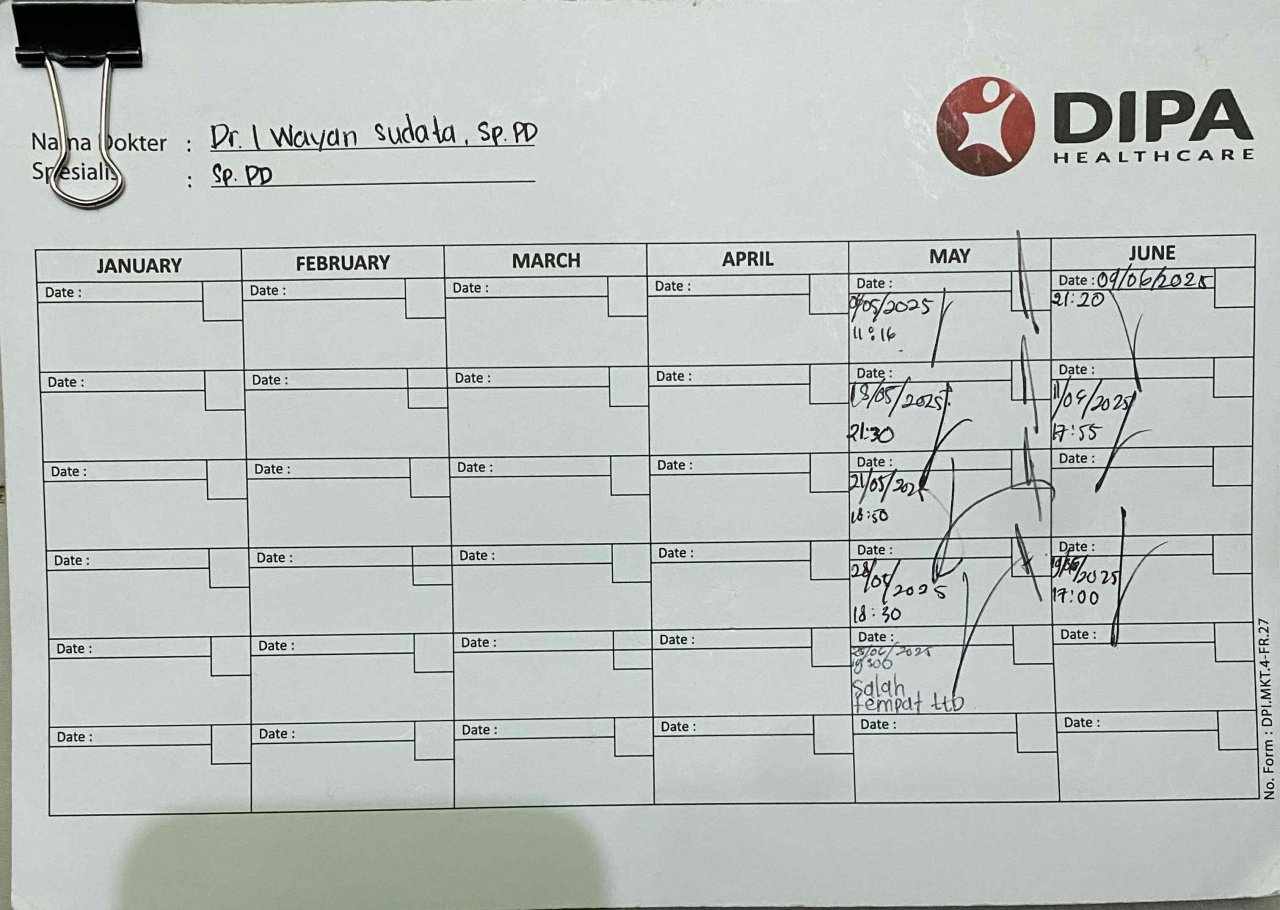 Nama Dokter : Dr. I Wayan Sudata, Sp.PD
Spesialis : Sp.PD
DIPA
HEALTHCARE
JANUARY FEBRUARY MARCH APRIL MAY JUNE
Date : Date : Date : Date : Date : Date : 09/06/2025
/05/2025 21:20
11:16
Date : Date : Date : Date : Date : Date :
18/05/2025 11/06/2025
21:30 17:55
Date : Date : Date : Date : Date : Date :
21/05/2025
18:50
Date : Date : Date : Date : Date : Date :
28/05/2025 19/06/2025
18:30 17:00
Date : Date : Date : Date : Date : Date :
/06/2025
Salah
tempat ttD
Date : Date : Date : Date : Date : Date :
No. Form : DPI.MKT.4-FR.27